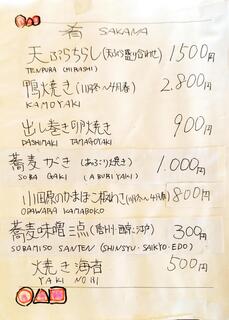 肴 SAKANA
天ぷらちらし(天ぷら盛り合わせ) 1500円
TENPURA (CHIRASHI)
鴨焼き(11月〜4月春) 2.800円
KAMOYAKI
出し巻き卵焼き 900円
DASHIMAKI TAMAGOYAKI
蕎麦がき(あぶり焼き) 1.000円
SOBA GAKI (ABURIYAKI)
小田原のかまぼこ板わさ(11月〜4月春) 800円
ODAWARA KAMABOKO
蕎麦味噌三点(信州・西京・江戸) 300円
SOBAMISO SANTEN (SHINSYU-SAIKYO-EDO)
焼き海苔 500円
YAKI NORI